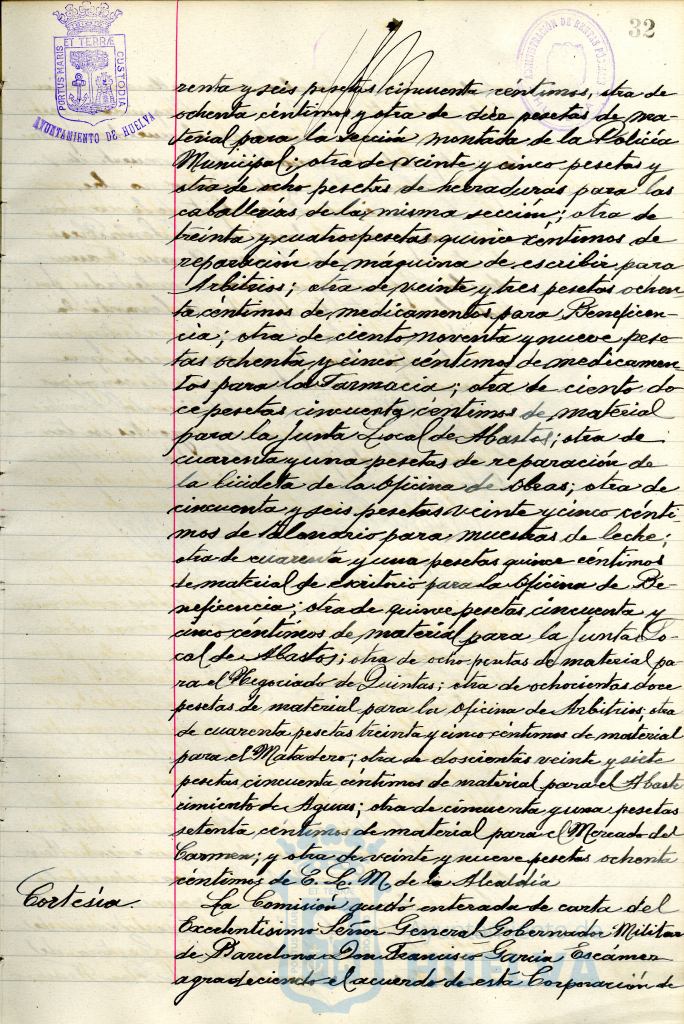 32
PORTUS MARIS ET TERRÆ CUSTODIA
AYUNTAMIENTO DE HUELVA
renta y seis pesetas cincuenta céntimos, otra de
ochenta céntimos y otra de diez pesetas de ma-
terial para la sección montada de la Policía
Municipal; otra de veinte y cinco pesetas y
otra de ocho pesetas de herraduras para las
caballerías de la misma sección; otra de
treinta y cuatro pesetas quince céntimos de
reparación de máquina de escribir para
Arbitrios; otra de veinte y tres pesetas ochen-
ta céntimos de medicamentos para Beneficen-
cia; otra de ciento noventa y nueve pese-
tas ochenta y cinco céntimos de medicamen-
tos para la Farmacia; otra de ciento do
ce pesetas cincuenta céntimos de material
para la Junta Local de Abastos; otra de
cuarenta y una pesetas de reparación de
la bicicleta de la Oficina de Obras; otra de
cincuenta y seis pesetas veinte y cinco cénti-
mos de para muestras de leche;
otra de cuarenta y una pesetas quince céntimos
de material de escritorio para la Oficina de Be-
neficencia; otra de quince pesetas cincuenta y
cinco céntimos de material para la Junta Lo-
cal de Abastos; otra de ocho pesetas de material pa-
ra el Negociado de Quintas; otra de ochocientas doce
pesetas de material para la Oficina de Arbitrios; otra
de cuarenta pesetas treinta y cinco céntimos de material
para el Matadero; otra de doscientas veinte y siete
pesetas cincuenta céntimos de material para el Abaste
cimiento de Aguas; otra de cincuenta y una pesetas
setenta céntimos de material para el Mercado del
Carmen; y otra de veinte y nueve pesetas ochenta
céntimos de E. L. M. de la Alcaldía
Cortesía.
La Comisión quedó enterada de carta del
Excelentísimo Señor General Gobernador Militar
de Barcelona Don Francisco García Escamez
agradeciendo el acuerdo de esta Corporación de
HUELVA